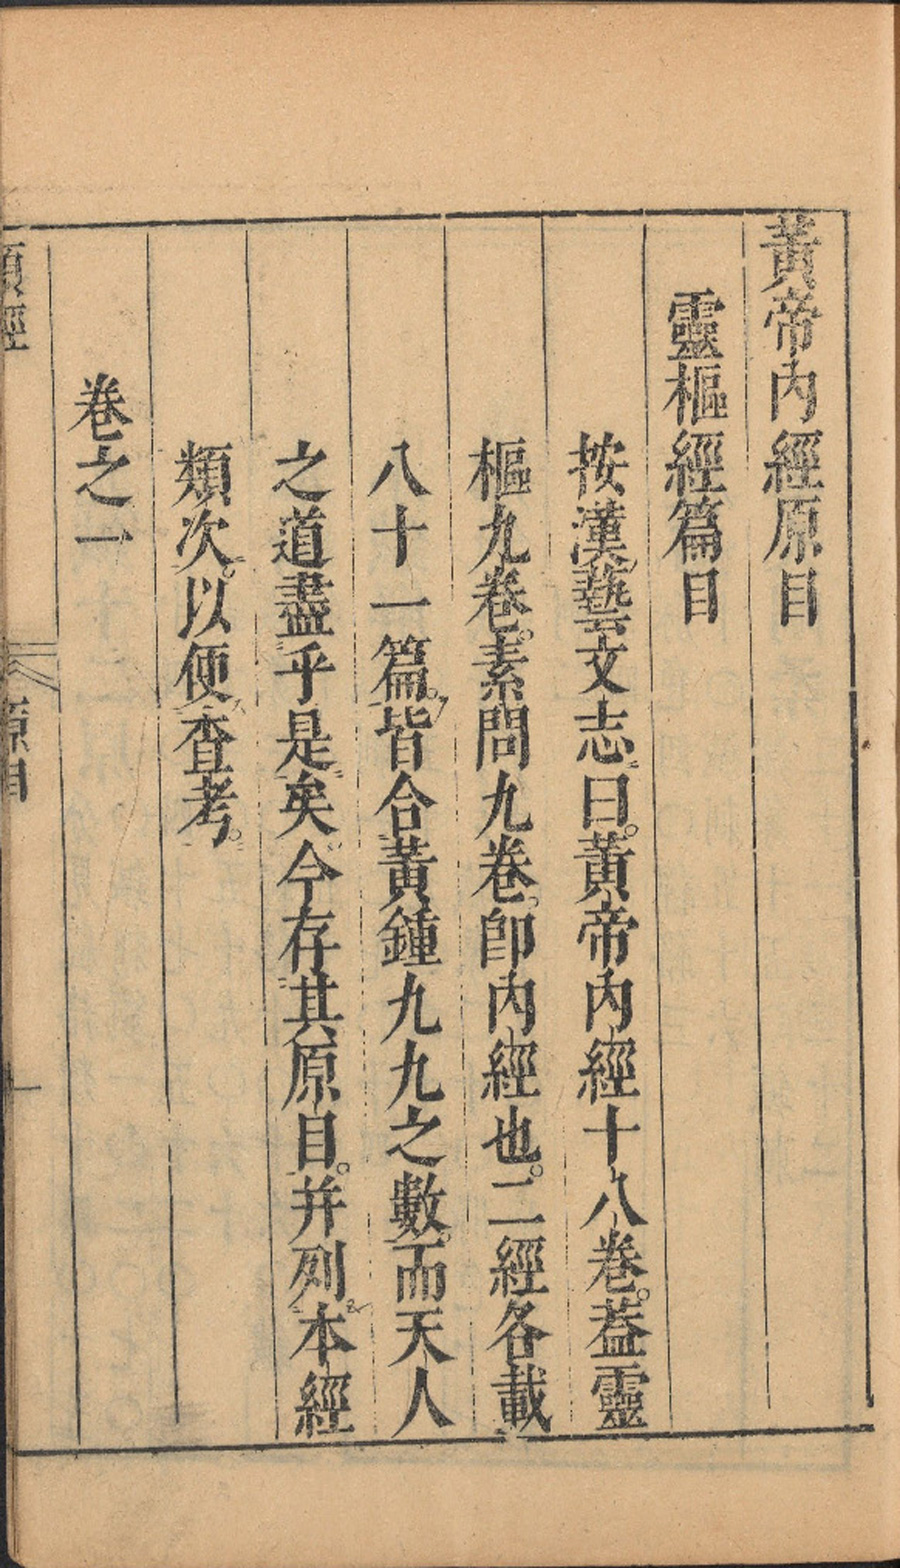 黃帝內經原目
靈樞經篇目
按漢藝文志曰。黃帝內經十八卷。葢靈
樞九卷。素問九卷。卽內經也。二經各載
八十一篇。皆合黃鍾九九之數。而天人
之道盡乎是矣。今存其原目。并列本經
類次。以便查考。
卷之一
類經
原目
一